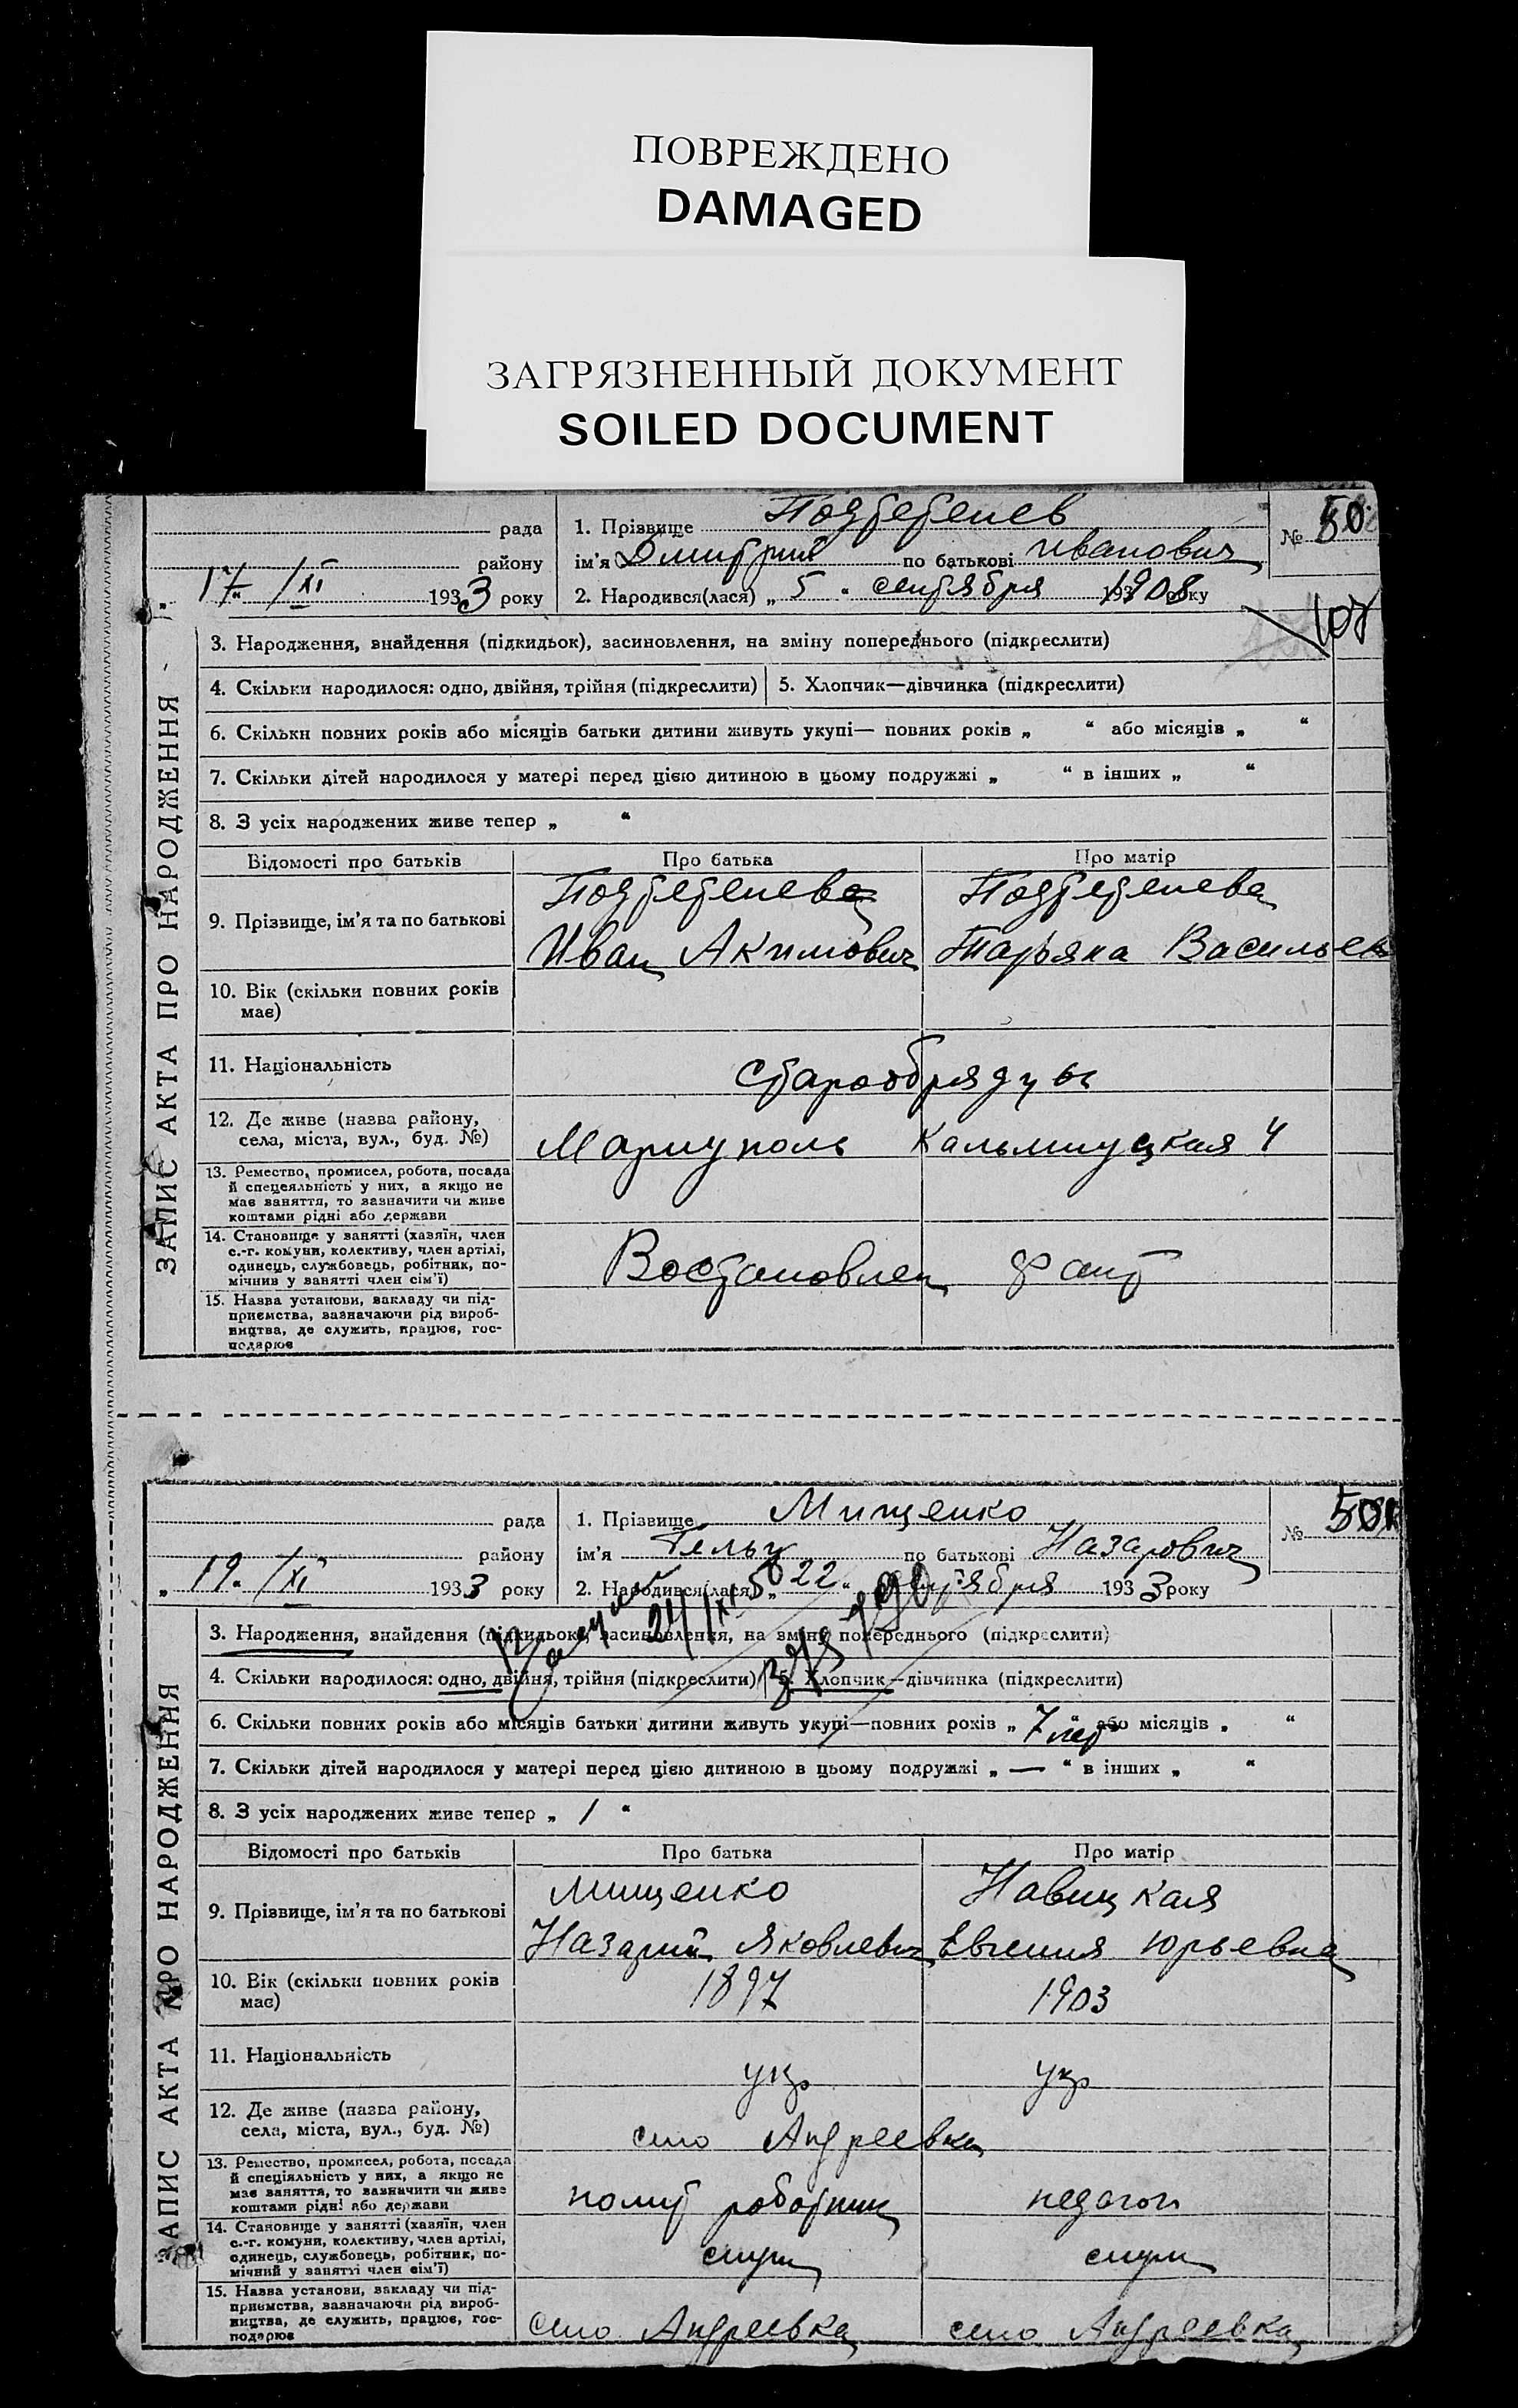 ПОВРЕЖДЕНО
DAMAGED
ЗАГРЯЗНЕННЫЙ ДОКУМЕНТ
SOILED DOCUMENT
рада
1. Прізвище
№ 50
району
ім'я Дмитрий по батькові Иванович
17 /XI 1933 року
2. Народився(лася) „ 5 " сентября 1908 року
107
ЗАПИС АКТА ПРО НАРОДЖЕННЯ
3. Народження, знайдення (підкидьок), засиновлення, на зміну попереднього (підкреслити)
4. Скільки народилося: одно, двійня, трійня (підкреслити)
5. Хлопчик—дівчинка (підкреслити)
6. Скільки повних років або місяців батьки дитини живуть укупі— повних років „ “ або місяців „ “
7. Скільки дітей народилося у матері перед цією дитиною в цьому подружжі „ “ в інших „ “
8. З усіх народжених живе тепер „ “
Відомості про батьків
Про батька
Про матір
9. Прізвище, ім'я та по батькові
Иван Акимович
Татьяна Васильев
10. Вік (скільки повних років
має)
11. Національність
старообрядцы
12. Де живе (назва району,
села, міста, вул., буд. №)
Мариуполь Кальмиуцкая 4
13. Ремество, промисел, робота, посада
й спецеяльність у них, а якщо не
має заняття, то зазначити чи живе
коштами рідні або держави
14. Становище у занятті (хазяїн, член
с.-г. комуни, колективу, член артілі,
одинець, службовець, робітник, по-
мічник у занятті член сім'ї)
Востановлен
15. Назва установи, закладу чи під-
приємства, зазначаючи рід вироб-
ництва, де служить, працює, гос-
подарює
рада
1. Прізвище Мищенко
№ 50
району
ім'я по батькові Назарович
„ 19. /XI 1933 року
2. Народився(лася) „ 22 " сентября 1933 року
24/XI
ЗАПИС АКТА ПРО НАРОДЖЕННЯ
3. Народження, знайдення (підкидьок), засиновлення, на зміну попереднього (підкреслити)
4. Скільки народилося: одно, двійня, трійня (підкреслити)
5. Хлопчик—дівчинка (підкреслити)
6. Скільки повних років або місяців батьки дитини живуть укупі—повних років „ 7 лет “ або місяців „ “
7. Скільки дітей народилося у матері перед цією дитиною в цьому подружжі „ — “ в інших „ “
8. З усіх народжених живе тепер „ 1 “
Відомості про батьків
Про батька
Про матір
9. Прізвище, ім'я та по батькові
Мищенко
Навицкая
Назарий Яковлевич
Евгения Юрьевна
10. Вік (скільки повних років
має)
1897
1903
11. Національність
укр
укр
12. Де живе (назва району,
села, міста, вул., буд. №)
село Андреевка
13. Ремество, промисел, робота, посада
й спеціяльність у них, а якщо не
має заняття, то зазначити чи живе
коштами рідні або держави
полит работник
педагог
14. Становище у занятті (хазяїн, член
с.-г. комуни, колективу, член артілі,
одинець, службовець, робітник, по-
мічний у занятті член сім'ї)
служ
служ
15. Назва установи, закладу чи під-
приємства, зазначаючи рід вироб-
ництва, де служить, працює, гос-
подарює
село Андреевка
село Андреевка